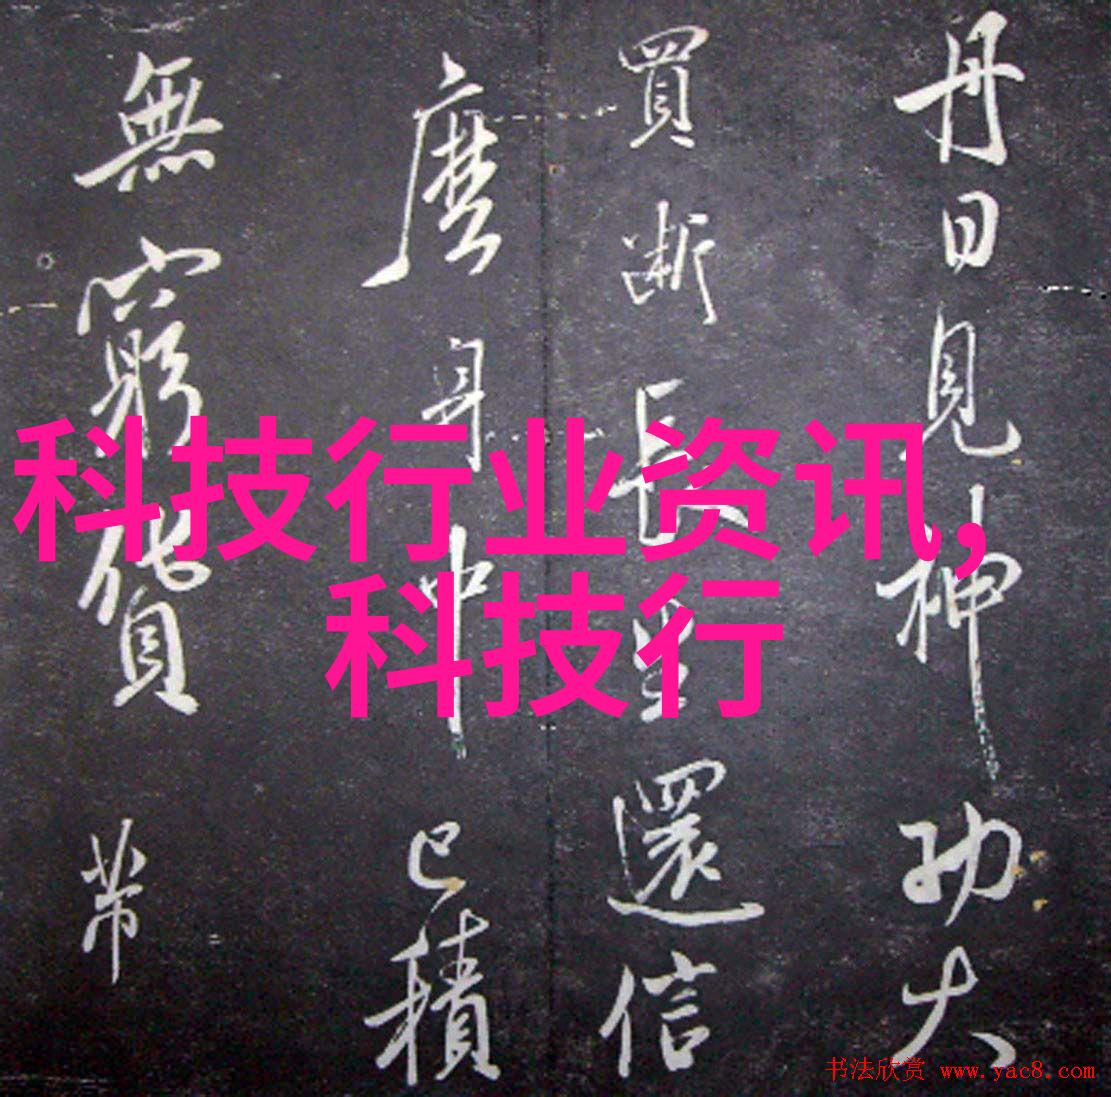 丹日見神功大
買斷長生還信
麽身中已積
無窮貨带
科技行业资讯,
科技行
书法欣赏 www.yac8.com